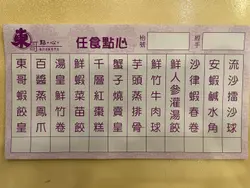 東
點•心
任食點心
枱號
經手
流沙擂沙球
安蝦鹹水角
沙律蝦春卷
鮮人參灌湯餃
鮮竹牛肉球
芋頭蒸排骨
蟹子燒賣皇
千層紅棗糕
鮮蝦菜苗餃
湯皇鮮竹卷
百醬蒸鳳爪
東哥蝦餃皇